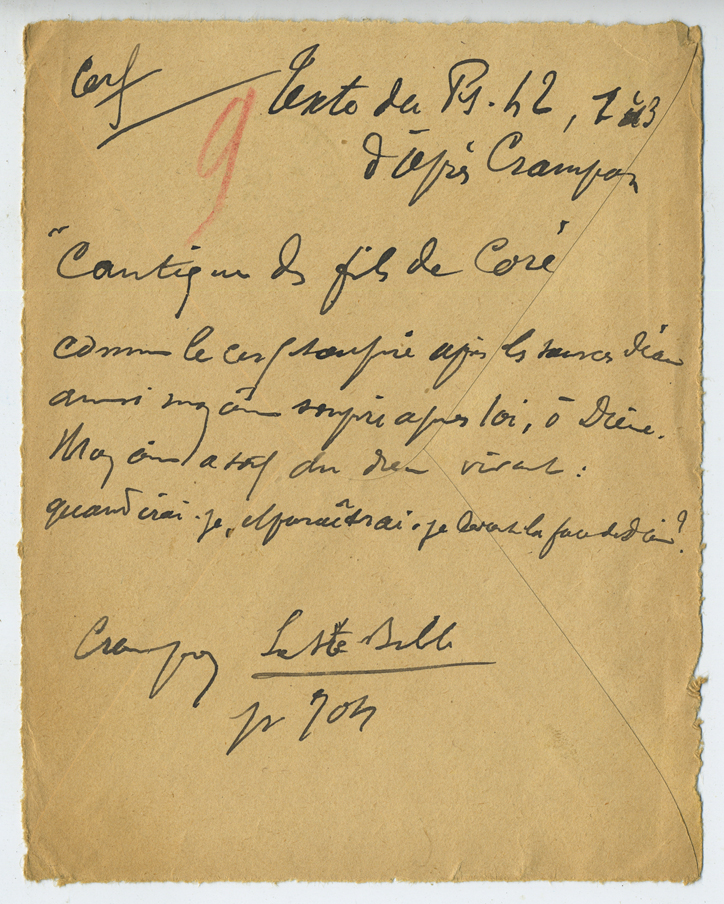 Cerf
Texte du Ps. 42, 1 à 3
9
d'après Crampon
"Cantique des fils de Coré"
comme le cerf soupire après les sources d'eau
ainsi mon âme soupire après toi, ô Dieu.
Mon âme a soif du dieu vivant :
quand irai-je, et paraîtrai-je devant la face de Dieu ?
Crampon La Ste Bible
p 704